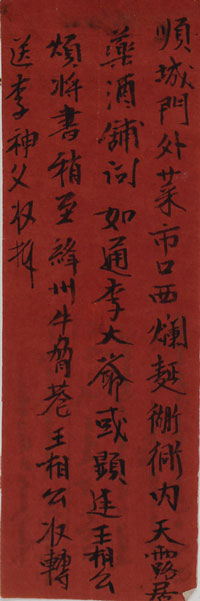 順城門外菜市口西爛麵衚衕內天露居
藥酒舖詞如通李大爺或顕達王相公
煩將書稍至絳州牛角巷王相公收轉
送李神父收拆